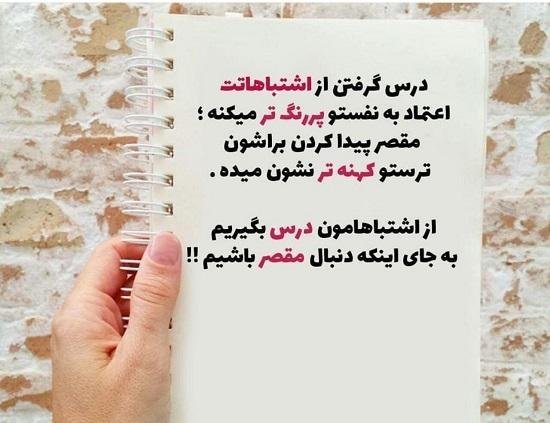 درس گرفتن از اشتباهاتت
اعتماد به نفستو پررنگ تر میکنه ؛
مقصر پیدا کردن براشون
ترستو کهنه تر نشون میده .
از اشتباهامون درس بگیریم
به جای اینکه دنبال مقصر باشیم !!